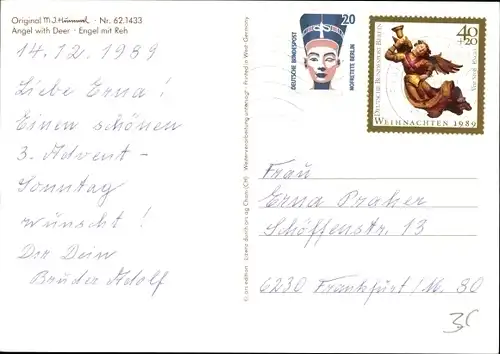 Original M.J.Hummel · Nr. 62.1433
Angel with Deer · Engel mit Reh
14.12.1989
Liebe Erna!
Einen schönen
3. Advent-
Sonntag
wünscht!
Dir Dein
Bruder Adolf
© ars edition · Lizenz durch ars ag Cham (CH) · Weiterverarbeitung untersagt · Printed in West Germany
20
DEUTSCHE BUNDESPOST
NOFRETETE BERLIN
40
+20
DEUTSCHE BUNDESPOST BERLIN
WEIHNACHTEN 1989
Frau
Erna Praher
Schöffenstr. 13
6230 Frankfurt/M. 80